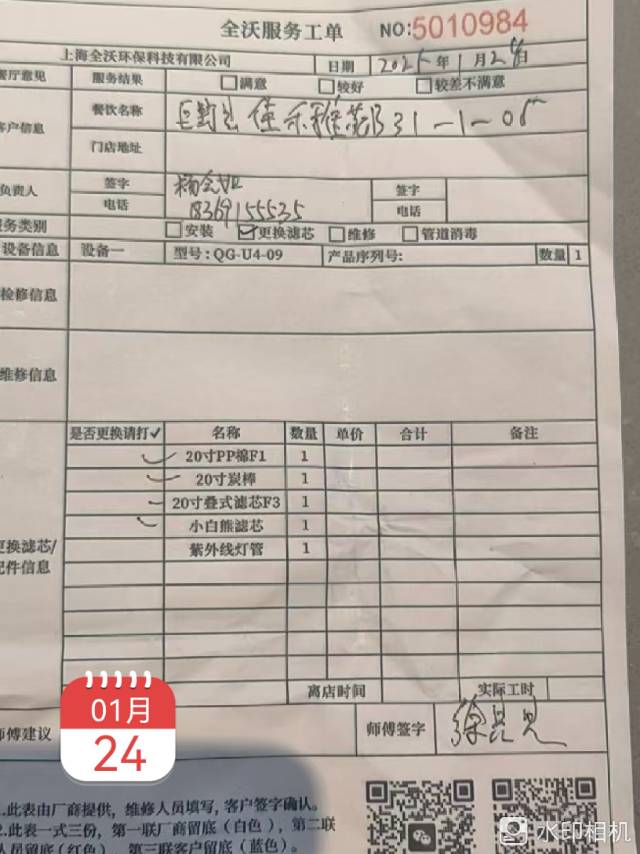 全沃服务工单 NO:5010984
上海全沃环保科技有限公司 日期 2025年1月24日
餐厅意见 服务结果 满意 较好 较差不满意
客户信息 餐饮名称 31-1-05
门店地址
负责人 签字 签字
电话 18369155535 电话
服务类别 安装 更换滤芯 维修 管道消毒
设备信息 设备一 型号:QG-U4-09 产品序列号: 数量 1
检修信息
维修信息
是否更换请打✓ 名称 数量 单价 合计 备注
✓ 20寸PP棉F1 1
✓ 20寸炭棒 1
✓ 20寸叠式滤芯F3 1
✓ 小白熊滤芯 1
紫外线灯管 1
更换滤芯/
配件信息
离店时间 实际工时
师傅建议 师傅签字
01月
24
1.此表由厂商提供，维修人员填写，客户签字确认。
2.此表一式三份，第一联厂商留底（白色），第二联
人员留底（红色），第三联客户留底（蓝色）。
水印相机